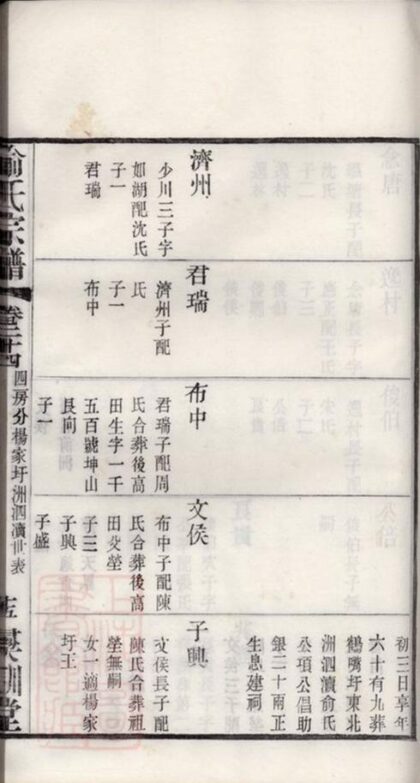 初三日享年
六十有九葬
鶴嘴圩東北
洲泗瀆俞氏
公項公倡助
銀二十兩正
生息建祠
濟州
少川三子字
如湖配沈氏
子一
君瑞
君瑞
濟州子配
氏
子一
布中
布中
君瑞子配周
氏合葬後高
田生字一千
五百號坤山
艮向
子一
文侯
布中子配陳
氏合葬後高
田父塋
子三
子興
子盛
子興
文侯長子配
陳氏合葬祖
塋無嗣
女一適楊家
圩王
俞氏宗譜
卷二十四
四房分楊家圩洲泗瀆世表